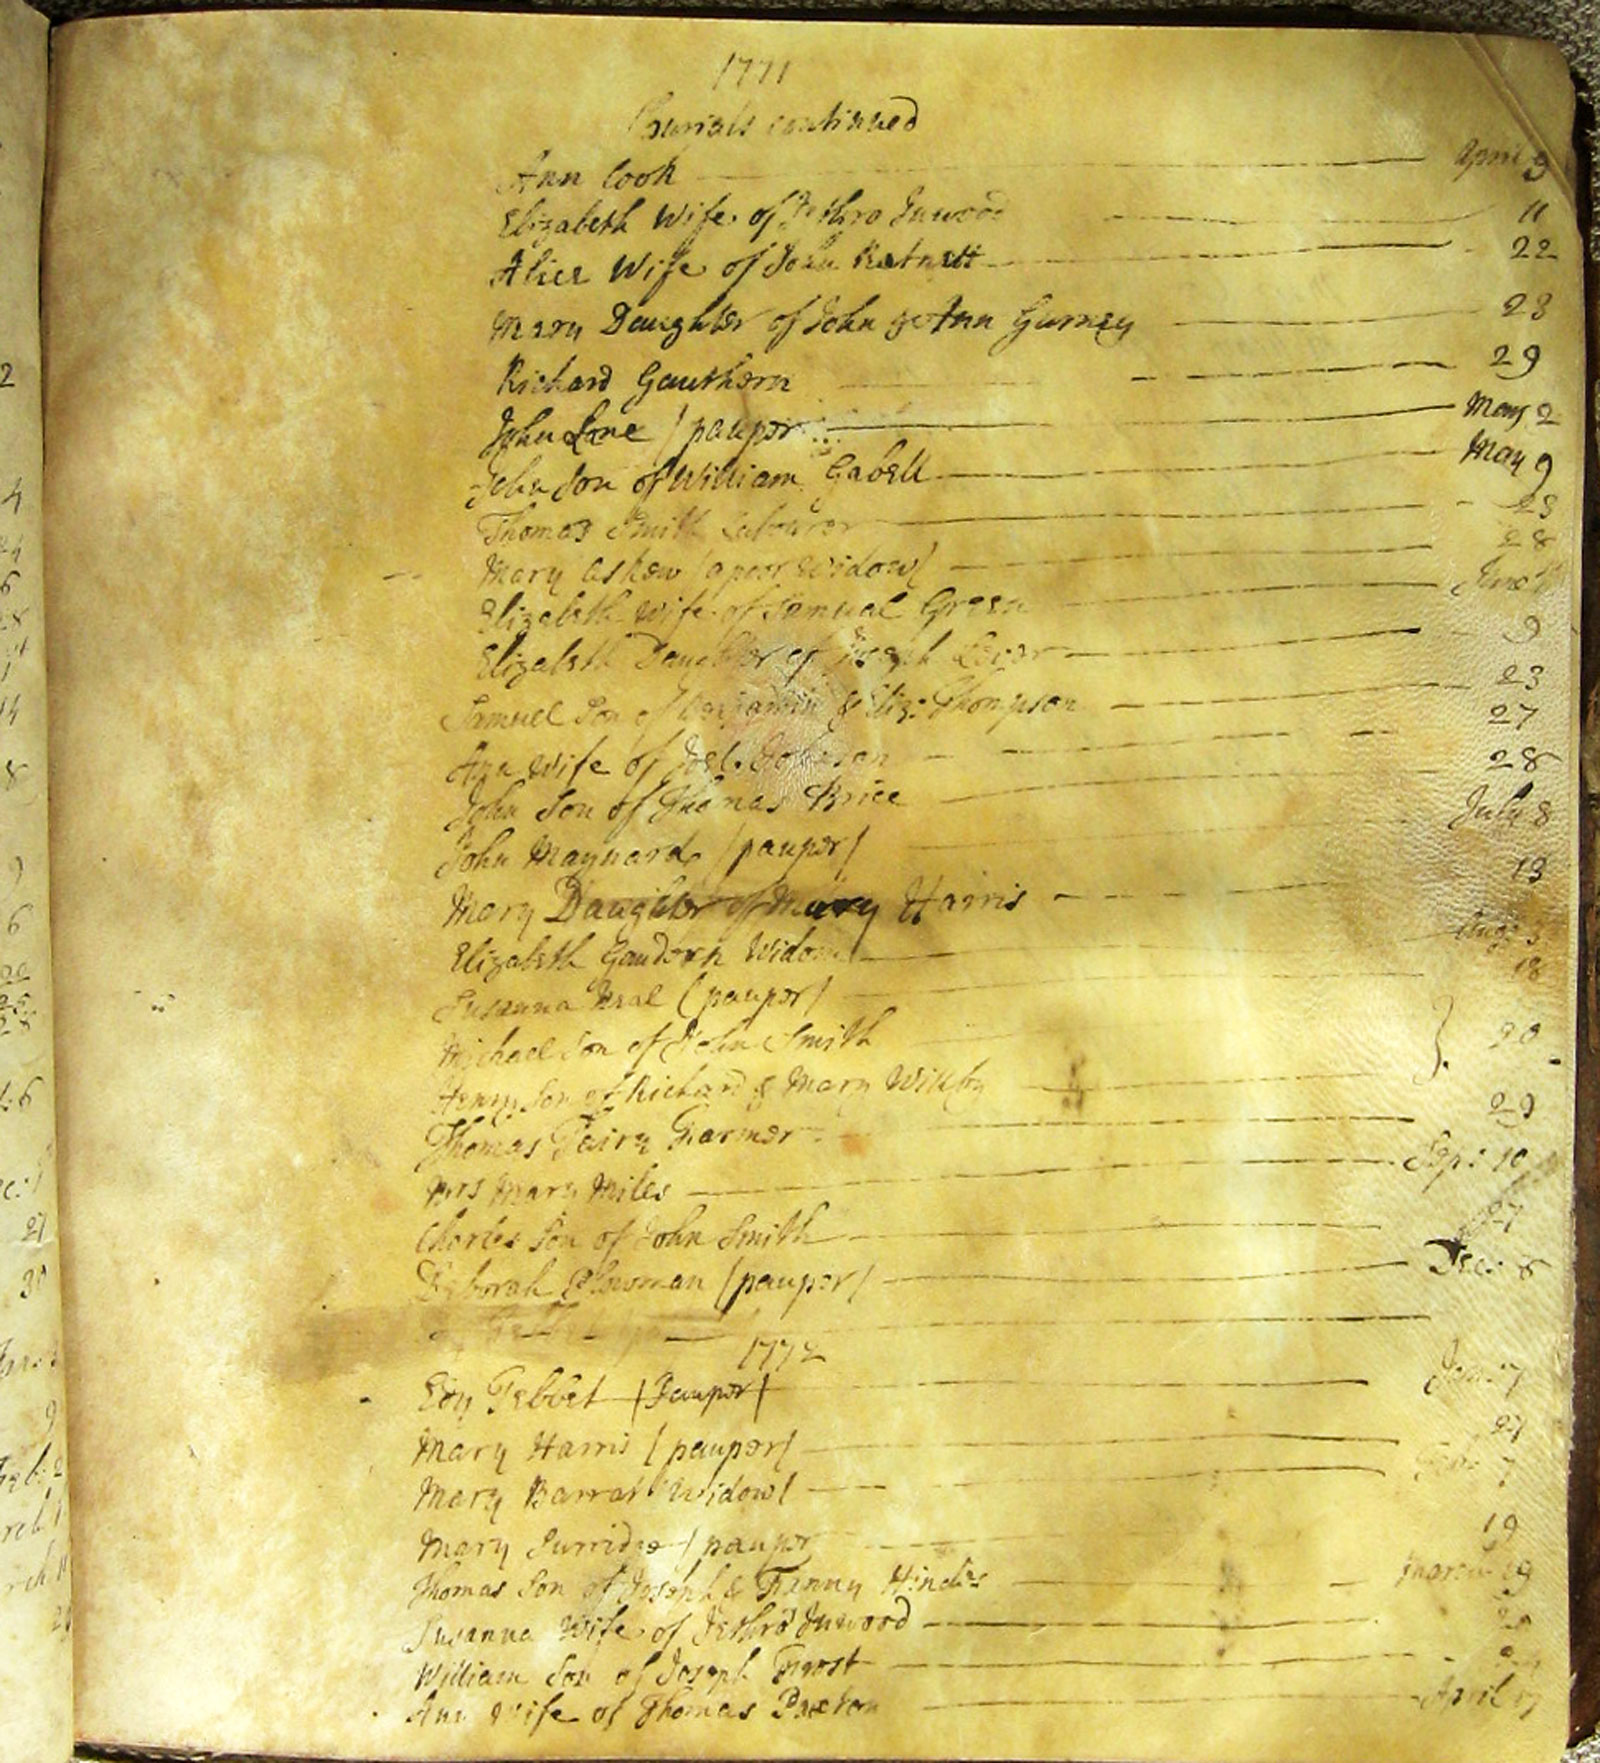 1771
Burials continued
Ann Cook April 9
Elizabeth Wife of Jethro Inwood 11
Alice Wife of John Ratnett 22
Mary Daughter of John & Ann Gurney 23
Richard Gauthorn 29
John Lane (pauper May 2
John Son of William Gabell May 9
Thomas Smith Labourer 23
Mary Askew (a poor Widow) 28
Elizabeth Wife of Samuel Green June
Elizabeth Daughter of Joseph 9
Samuel Son of Benjamin & Eliz: Thompson 23
Ann Wife of Joel Johnson 27
John Son of Thomas Price 28
John Maynard (pauper) July 8
Mary Daughter of Mary Harris 13
Elizabeth Gaudorn Widow Aug: 3
Susanna Neal (pauper) 18
Michael Son of John Smith
Henry Son of Richard & Mary Willby } 20
Thomas Fairy Farmer 29
Mrs Mary Miles Sep: 10
Charles Son of John Smith 27
Deborah Plowman (pauper) Dec: 8
1772
Edy Tebbet (Pauper) Jan: 7
Mary Harris (pauper)
Mary Barrat Widow) Feb: 7
Mary Surridge (pauper 19
Thomas Son of Joseph & Fanny Hindes March 19
Susanna Wife of Jethro Inwood
William Son of Joseph Frost
Ann Wife of Thomas Paxton April 17